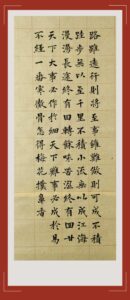 路雖遠行則將至事雖難做則可成不積
跬步無以至千里不積小流無以成江海
漫漫長途終有回轉餘味苦澀終有回甘
天下大事必作於細天下難事必成於易
不經一番寒徹骨怎得梅花撲鼻香